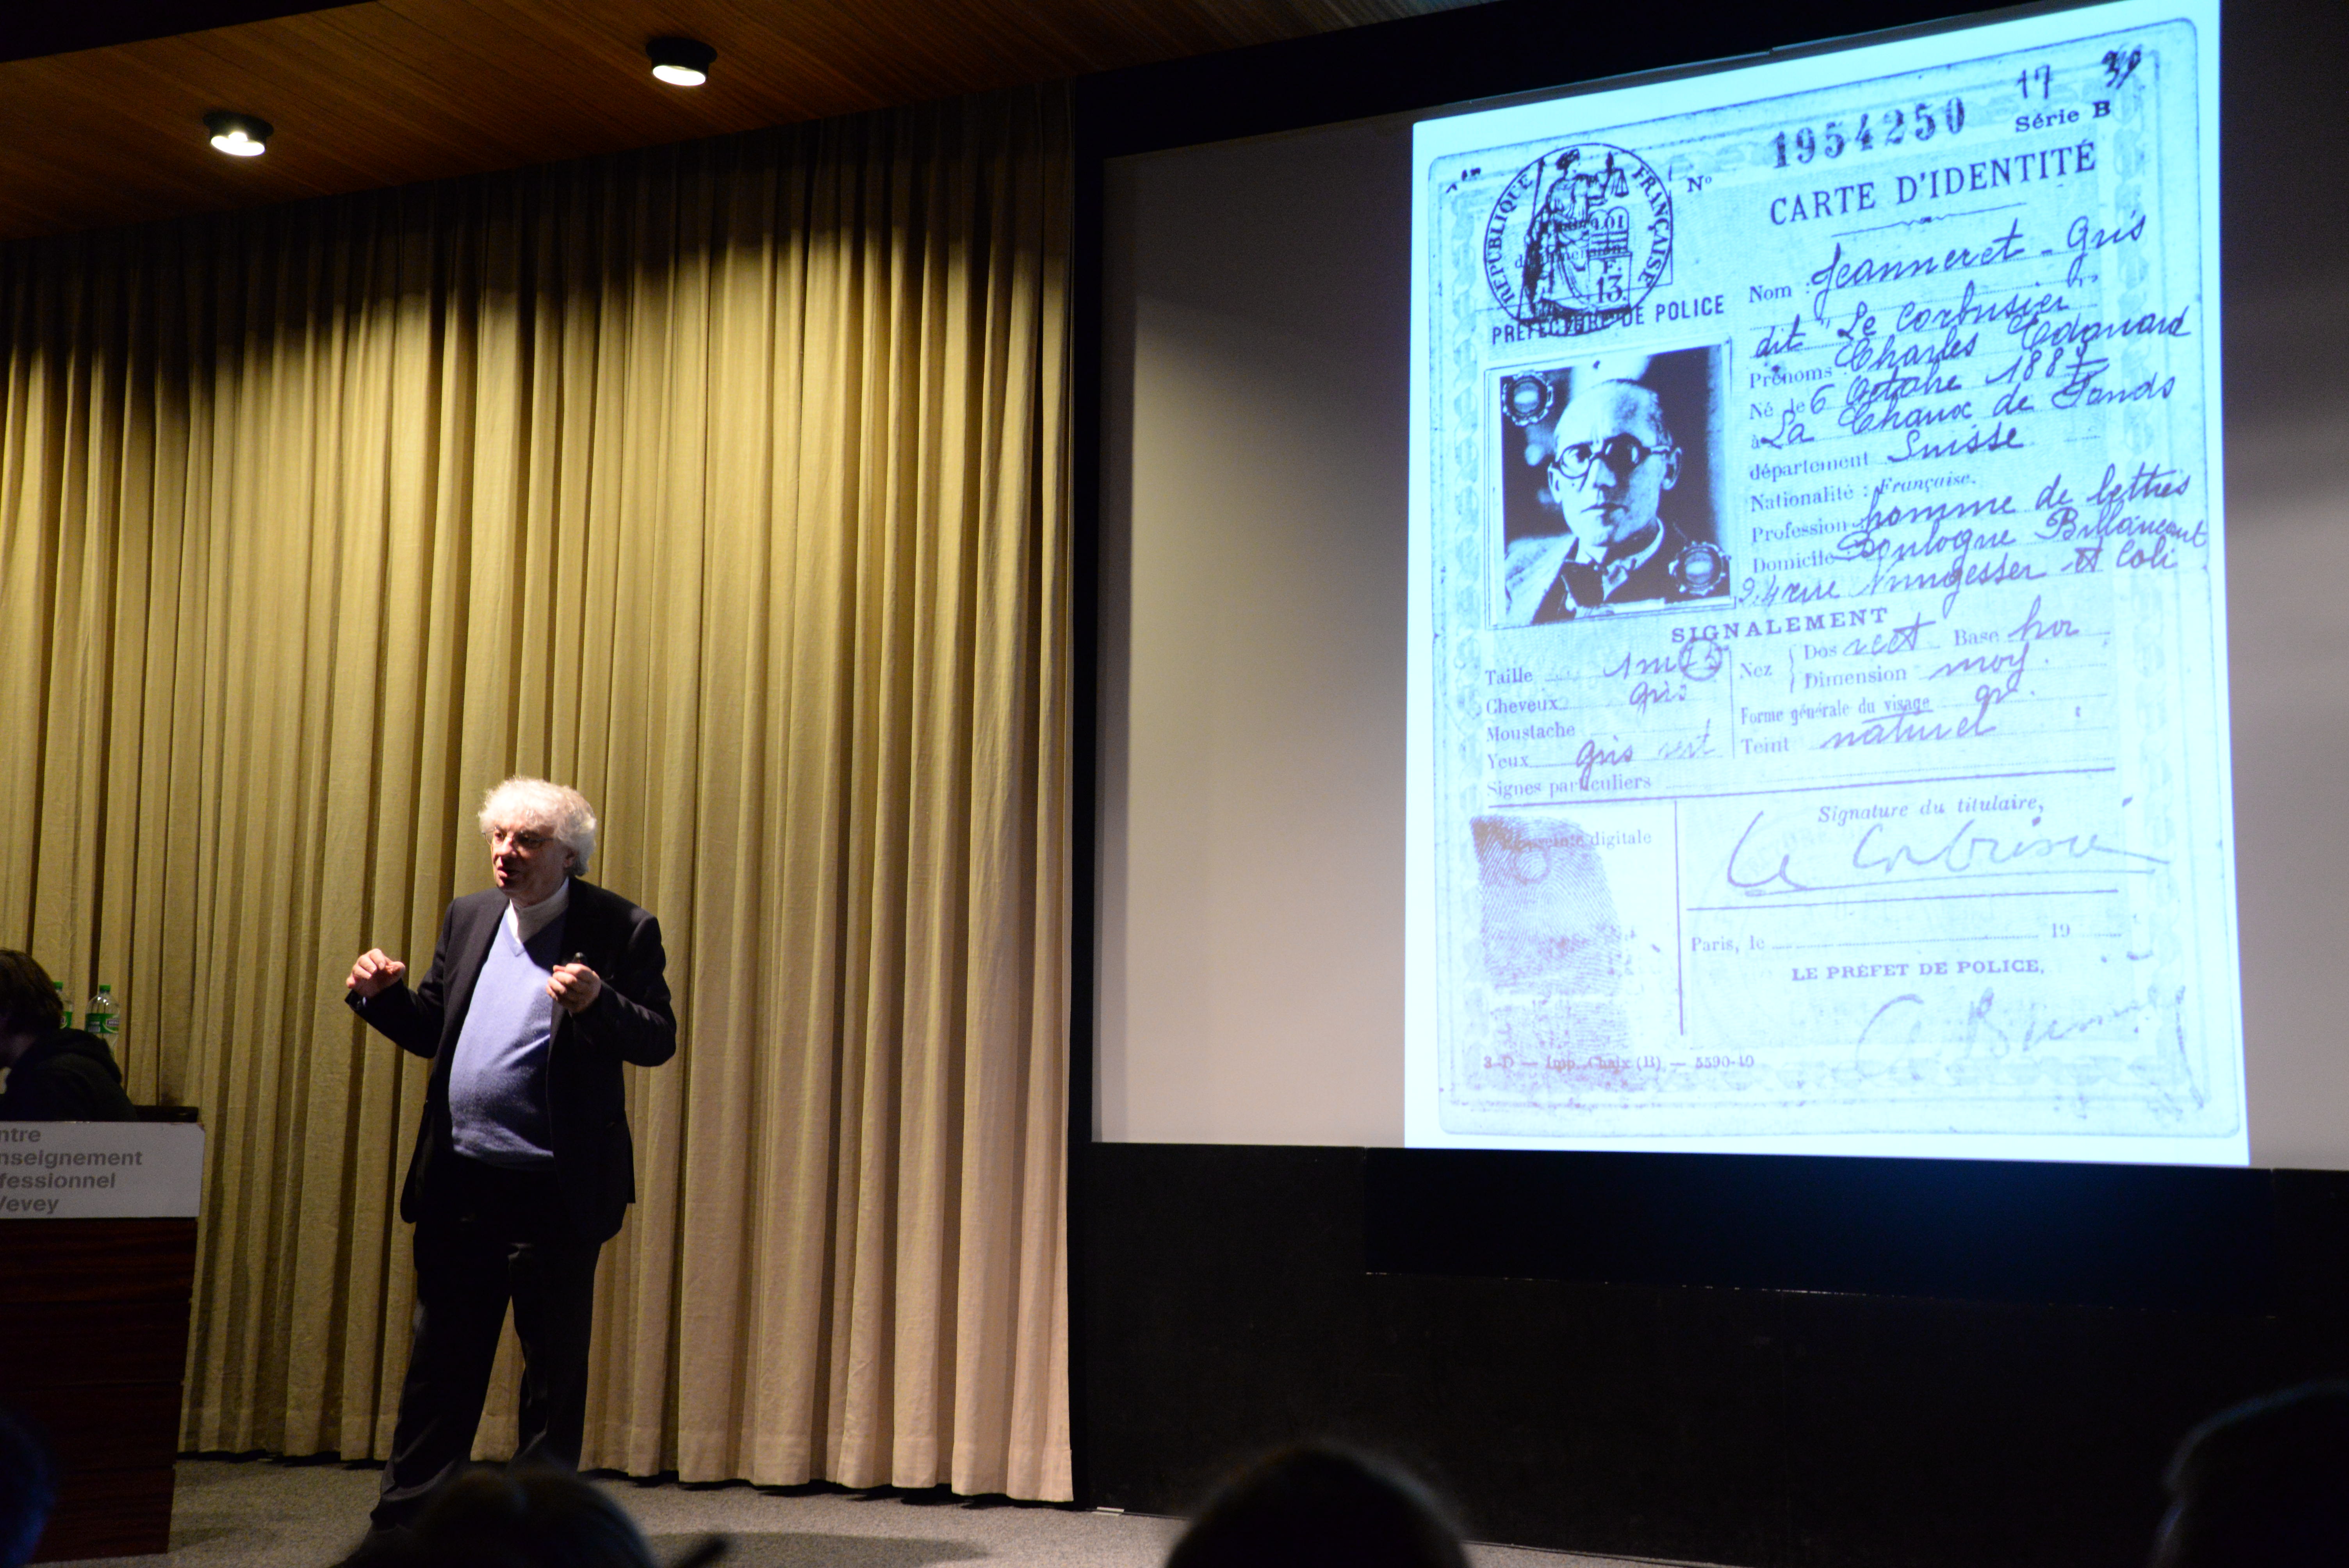 17 39
1954250 Série B
Nº
CARTE D'IDENTITÉ
RÉPUBLIQUE FRANÇAISE
9.01
F
13.
PRÉFECTURE DE POLICE
Nom : Jeanneret - Gris
dit "Le Corbusier"
Prénoms : Charles Edouard
Né le 6 Octobre 1887
à La Chaux de Fonds
département Suisse
Nationalité : Française.
Profession homme de lettres
Domicile Boulogne Billancourt
24 rue Nungesser et Coli
SIGNALEMENT
Taille 1m75
Cheveux gris
Moustache
Yeux gris vert
Signes particuliers
Nez Dos rect Base hor
Dimension moy.
Forme générale du visage ov.
Teint naturel
Empreinte digitale
Signature du titulaire,
Le Corbusier
Paris, le 19
LE PRÉFET DE POLICE,
3-D — Imp. Chaix (B) — 5590-40
ntre
nseignement
fessionnel
Vevey